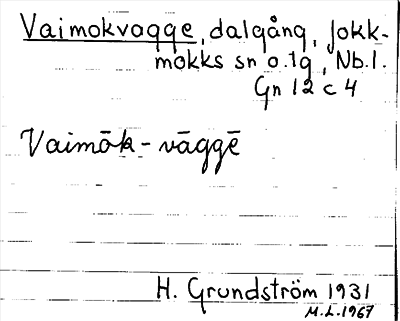 Vaimokvagge, dalgång, Jokk-
mokks sn o. lg, Nb.l.
Gn 12 c 4
Vaimōk - vāggē
H. Grundström 1931
M.L. 1967